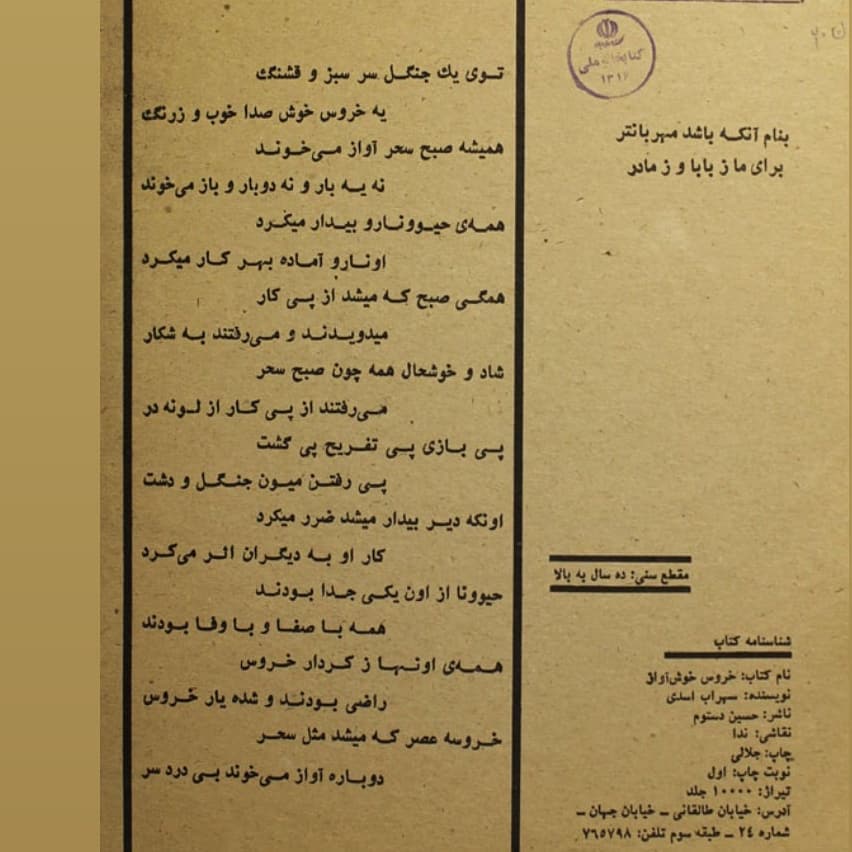 کتابخانه ملی
۱۳۱۶
بنام آنکه باشد مهربانتر
برای ما ز بابا و ز مادر
مقطع سنی: ده سال به بالا
شناسنامه کتاب
نام کتاب: خروس خوش‌آواز
نویسنده: سهراب اسدی
ناشر: حسین دستوم
نقاشی: ندا
چاپ: جلالی
نوبت چاپ: اول
تیراژ: ۱۰۰۰۰ جلد
آدرس: خیابان طالقانی ـ خیابان جهان ـ
شماره ۲٤ ـ طبقه سوم تلفن: ۷٦٥۷۹۸
توی یك جنگل سر سبز و قشنگ
یه خروس خوش صدا خوب و زرنگ
همیشه صبح سحر آواز می‌خوند
نه یه بار و نه دوبار و باز می‌خوند
همه‌ی حیوونارو بیدار میکرد
اونارو آماده بهر کار میکرد
همگی صبح که میشد از پی کار
میدویدند و می‌رفتند به شکار
شاد و خوشحال همه چون صبح سحر
می‌رفتند از پی کار از لونه در
پی بازی پی تفریح پی گشت
پی رفتن میون جنگل و دشت
اونکه دیر بیدار میشد ضرر میکرد
کار او به دیگران اثر می‌کرد
حیوونا از اون یکی جدا بودند
همه با صفا و با وفا بودند
همه‌ی اونها ز کردار خروس
راضی بودند و شده یار خروس
خروسه عصر که میشد مثل سحر
دوباره آواز می‌خوند بی درد سر